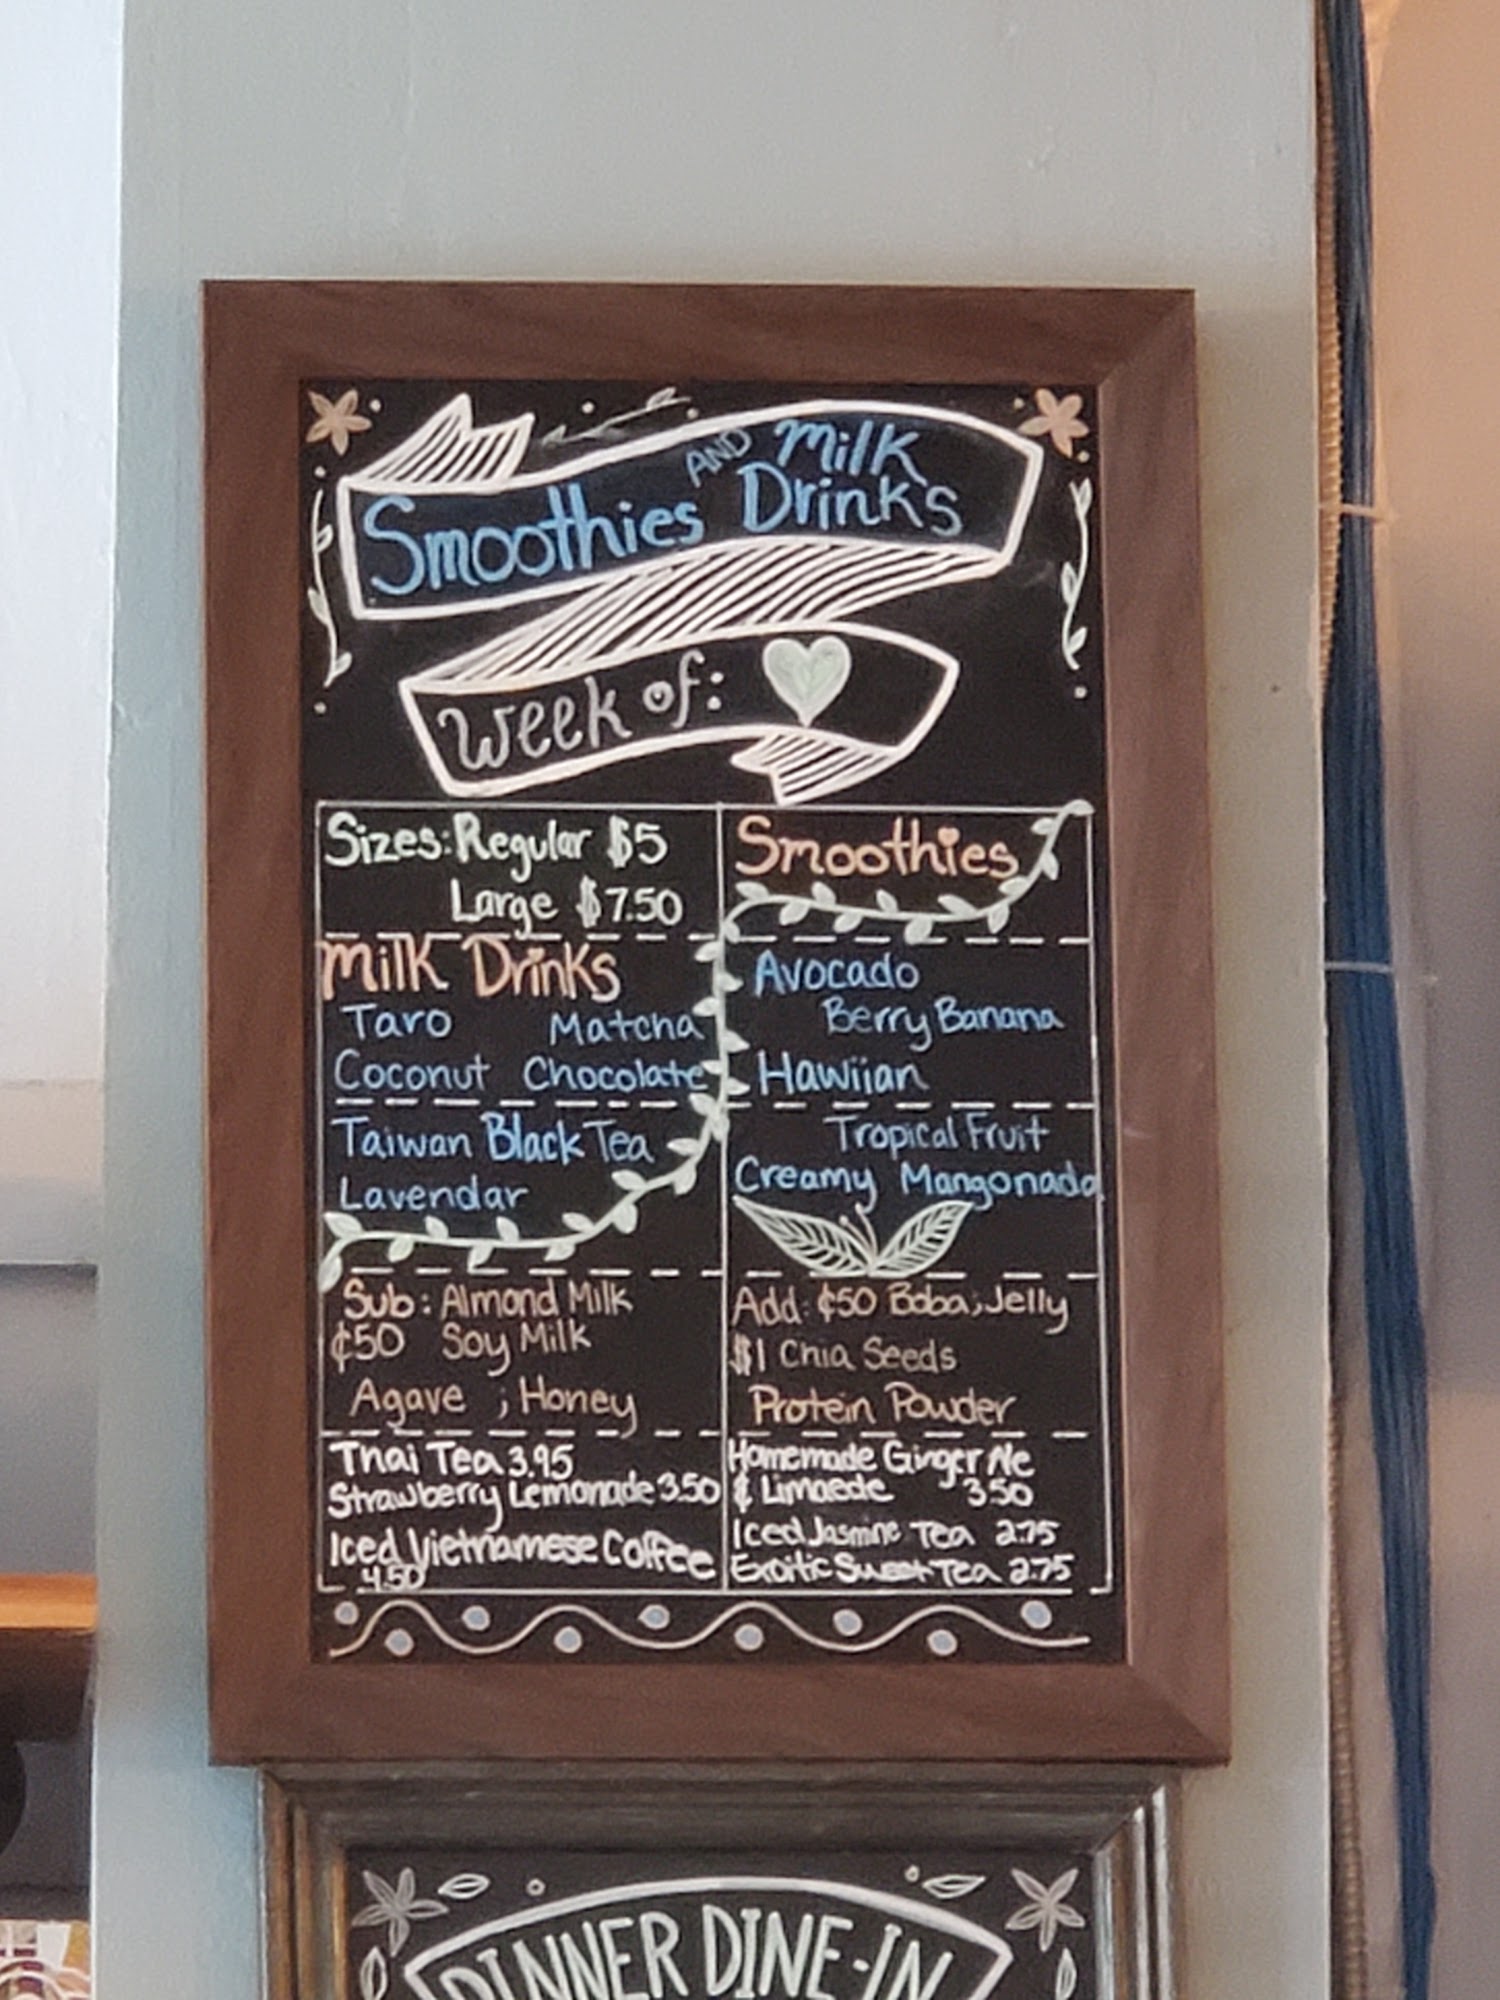 Smoothies AND Milk Drinks
Week of:
Sizes: Regular $5
Large $7.50
Milk Drinks
Taro Matcha
Coconut Chocolate
Taiwan Black Tea
Lavendar
Sub: Almond Milk
¢50 Soy Milk
Agave ; Honey
Thai Tea 3.95
Strawberry Lemonade 3.50
Iced Vietnamese Coffee
4.50
Smoothies
Avocado
Berry Banana
Hawiian
Tropical Fruit
Creamy Mangonada
Add: ¢50 Boba, Jelly
$1 Chia Seeds
Protein Powder
Homemade Ginger Ale
& Limaede 3.50
Iced Jasmine Tea 2.75
Exoitic Sweet Tea 2.75
DINNER DINE-IN